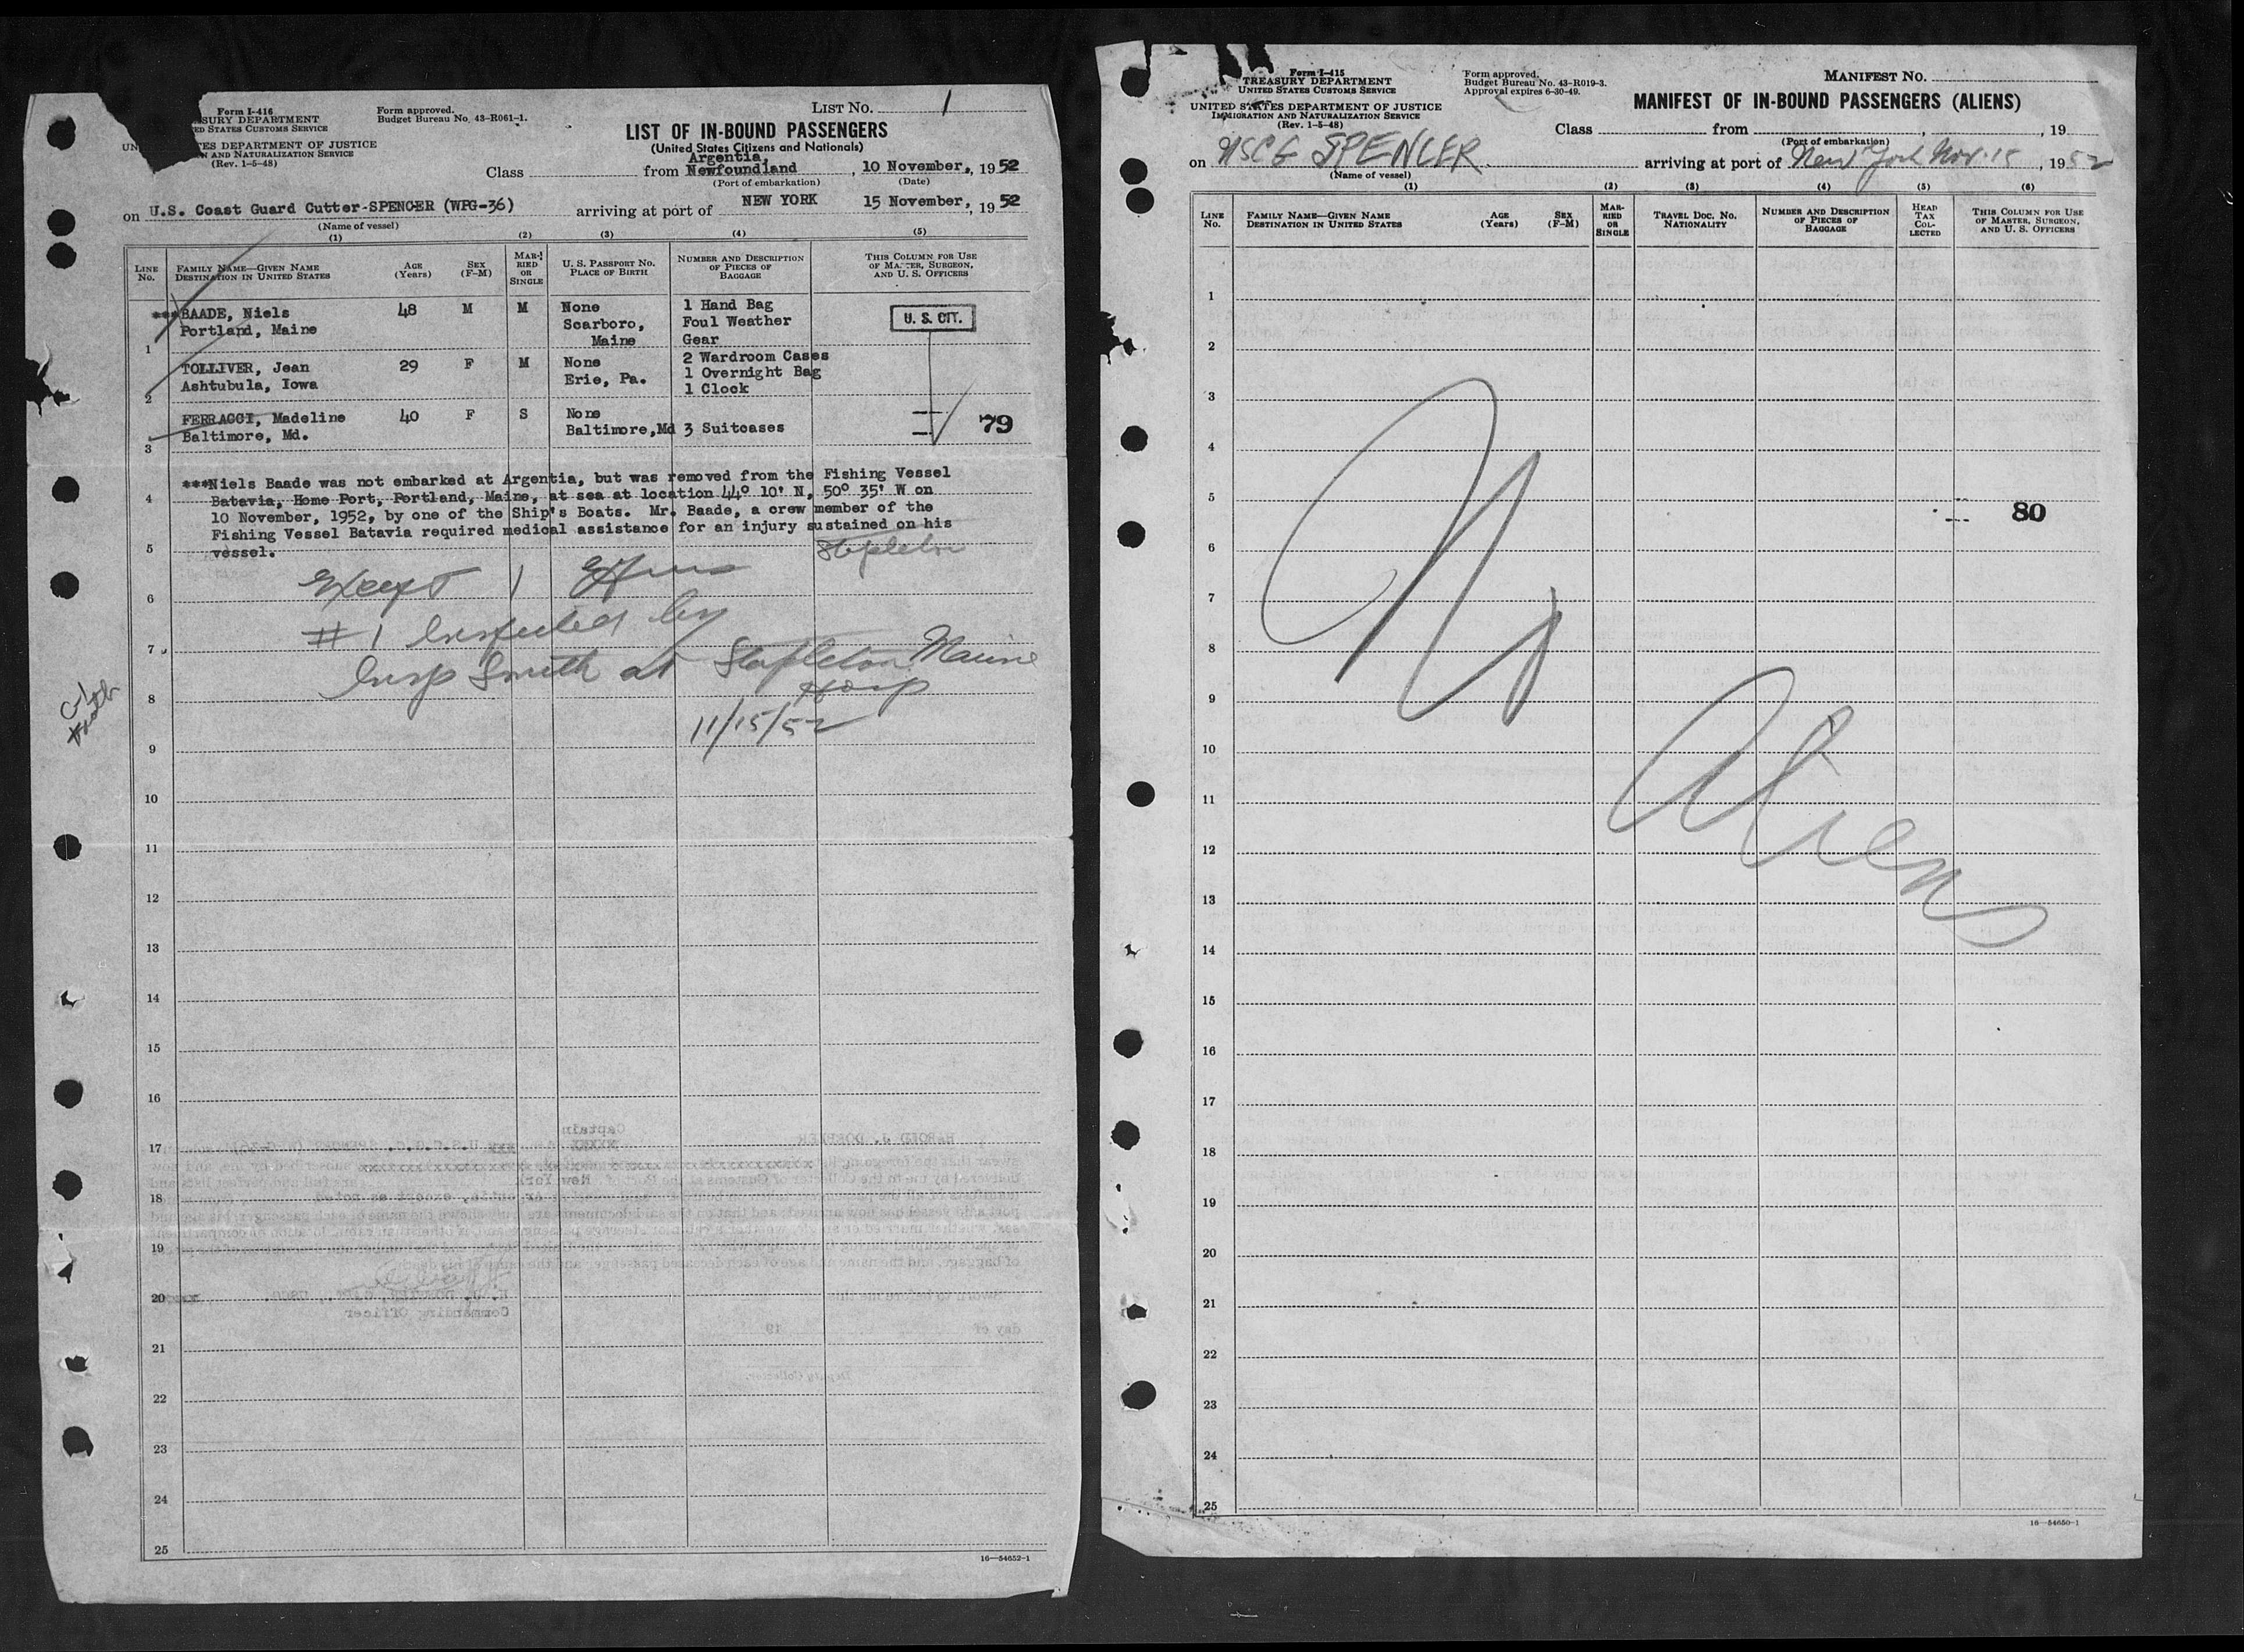 Form I-416
SURY DEPARTMENT
ED STATES CUSTOMS SERVICE
UN ES DEPARTMENT OF JUSTICE
N AND NATURALIZATION SERVICE
(Rev. 1-5-48)
Form approved.
Budget Bureau No. 43-R061-1.
LIST No. 1
LIST OF IN-BOUND PASSENGERS
(United States Citizens and Nationals)
Argentia,
Class from Newfoundland, 10 November, 1952
(Port of embarkation) (Date)
on U.S. Coast Guard Cutter SPENCER (WPG-36) arriving at port of NEW YORK 15 November, 1952
(Name of vessel)
(1) (2) (3) (4) (5)
LINE No.
FAMILY NAME—GIVEN NAME
DESTINATION IN UNITED STATES
AGE (Years)
SEX (F-M)
MARRIED OR SINGLE
U. S. PASSPORT NO.
PLACE OF BIRTH
NUMBER AND DESCRIPTION OF PIECES OF BAGGAGE
THIS COLUMN FOR USE OF MASTER, SURGEON, AND U. S. OFFICERS
***BAADE, Niels 48 M M None 1 Hand Bag
Portland, Maine Scarboro, Foul Weather U. S. CIT.
1 Maine Gear
TOLLIVER, Jean 29 F M None 2 Wardroom Cases
Ashtubula, Iowa Erie, Pa. 1 Overnight Bag
2 1 Clock
FERRACCI, Madeline 40 F S None
Baltimore, Md. Baltimore, Md 3 Suitcases 79
3
***Niels Baade was not embarked at Argentia, but was removed from the Fishing Vessel
4 Batavia, Home Port, Portland, Maine, at sea at location 44° 10' N, 50° 35' W on
10 November, 1952, by one of the Ship's Boats. Mr. Baade, a crew member of the
Fishing Vessel Batavia required medical assistance for an injury sustained on his
5 vessel.
Stapleton
Except 1
6
#1 Inspected by
7
Insp Smith at Stapleton Marine
Hosp
8
11/15/52
9
10
11
12
13
14
15
16
17
18
19
20
21
22
23
24
25
16—54652-1
Form I-415
TREASURY DEPARTMENT
UNITED STATES CUSTOMS SERVICE
UNITED STATES DEPARTMENT OF JUSTICE
IMMIGRATION AND NATURALIZATION SERVICE
(Rev. 1-5-48)
Form approved.
Budget Bureau No. 43-R019-3.
Approval expires 6-30-49.
MANIFEST No.
MANIFEST OF IN-BOUND PASSENGERS (ALIENS)
Class from , , 19
(Port of embarkation)
on USCG SPENCER arriving at port of New York Nov. 15, 1952
(Name of vessel)
(1) (2) (3) (4) (5) (6)
LINE No.
FAMILY NAME—GIVEN NAME
DESTINATION IN UNITED STATES
AGE (Years)
SEX (F-M)
MARRIED OR SINGLE
TRAVEL DOC. NO.
NATIONALITY
NUMBER AND DESCRIPTION OF PIECES OF BAGGAGE
HEAD TAX COLLECTED
THIS COLUMN FOR USE OF MASTER, SURGEON, AND U. S. OFFICERS
1
2
3
4
5
80
6
7
8
9
10
11
12
13
14
15
16
17
18
19
20
21
22
23
24
25
No
Aliens
16—54650-1